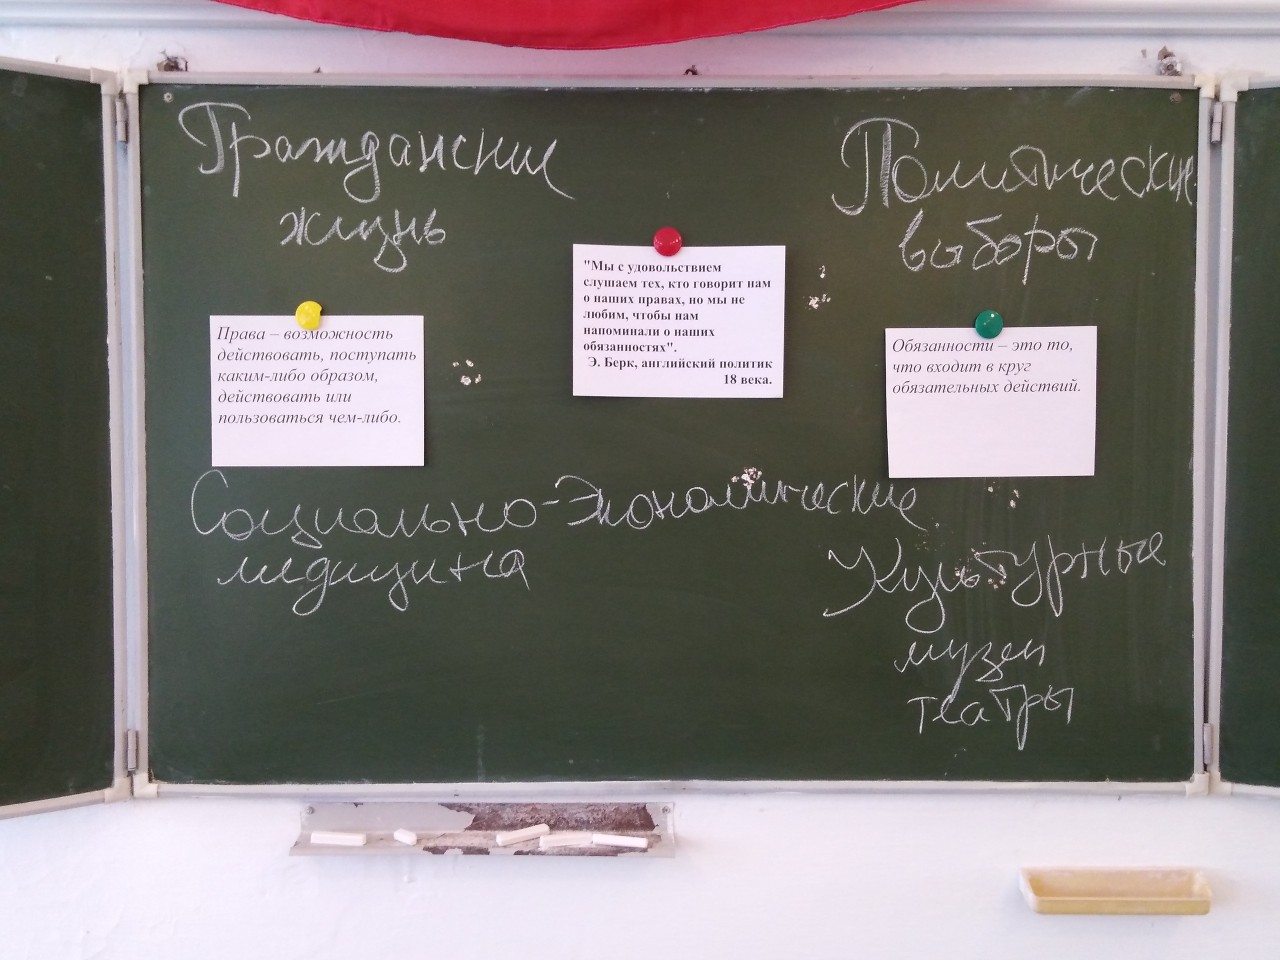 Гражданские
жизнь
Политические
выборы
"Мы с удовольствием
слушаем тех, кто говорит нам
о наших правах, но мы не
любим, чтобы нам
напоминали о наших
обязанностях".
Э. Берк, английский политик
18 века.
Права – возможность
действовать, поступать
каким-либо образом,
действовать или
пользоваться чем-либо.
Обязанности – это то,
что входит в круг
обязательных действий.
Социально-Экономические
медицина
Культурные
музеи
театры